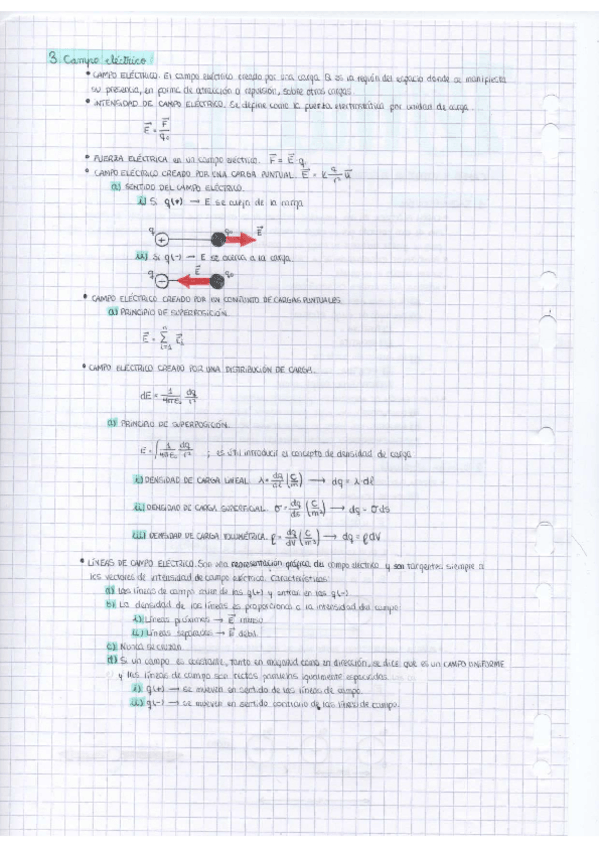 3. Campo eléctrico
• CAMPO ELÉCTRICO. El campo eléctrico creado por una carga. Es la región del espacio donde se manifiesta
su presencia, en forma de atracción o repulsión, sobre otras cargas.
• INTENSIDAD DE CAMPO ELÉCTRICO. Se define como la fuerza electrostática por unidad de carga.
E⃗ = F⃗/q₀
• FUERZA ELÉCTRICA en un campo eléctrico. F⃗ = E⃗·q
• CAMPO ELÉCTRICO CREADO POR UNA CARGA PUNTUAL. E⃗ = K q/r² u⃗
a) SENTIDO DEL CAMPO ELÉCTRICO.
i) Si q(+) → E se aleja de la carga
q q₀ E⃗
+
ii) Si q(-) → E se acerca a la carga
q E⃗ q₀
-
• CAMPO ELÉCTRICO CREADO POR UN CONJUNTO DE CARGAS PUNTUALES
a) PRINCIPIO DE SUPERPOSICIÓN.
E⃗ = Σ E⃗i
• CAMPO ELÉCTRICO CREADO POR UNA DISTRIBUCIÓN DE CARGA.
dE = 1/4πε₀ dq/r²
a) PRINCIPIO DE SUPERPOSICIÓN.
E = ∫ 1/4πε₀ dq/r² ; es útil introducir el concepto de densidad de carga
i) DENSIDAD DE CARGA LINEAL. λ = dq/dl (C/m) → dq = λ·dl
ii) DENSIDAD DE CARGA SUPERFICIAL. σ = dq/ds (C/m²) → dq = σds
iii) DENSIDAD DE CARGA VOLUMÉTRICA. ρ = dq/dV (C/m³) → dq = ρdV
• LÍNEAS DE CAMPO ELÉCTRICO. Son una representación gráfica del campo eléctrico y son tangentes siempre a
los vectores de intensidad de campo eléctrico. Características:
a) Las líneas de campo salen de las q(+) y entran en las q(-)
b) La densidad de las líneas es proporcional a la intensidad del campo
i) Líneas próximas → E⃗ intenso
ii) Líneas separadas → E⃗ débil
c) Nunca se cruzan
d) Si un campo es constante, tanto en magnitud como en dirección, se dice que es un CAMPO UNIFORME
y las líneas de campo son rectas paralelas igualmente espaciadas.
i) q(+) → se mueven en sentido de las líneas de campo.
ii) q(-) → se mueven en sentido contrario de las líneas de campo.